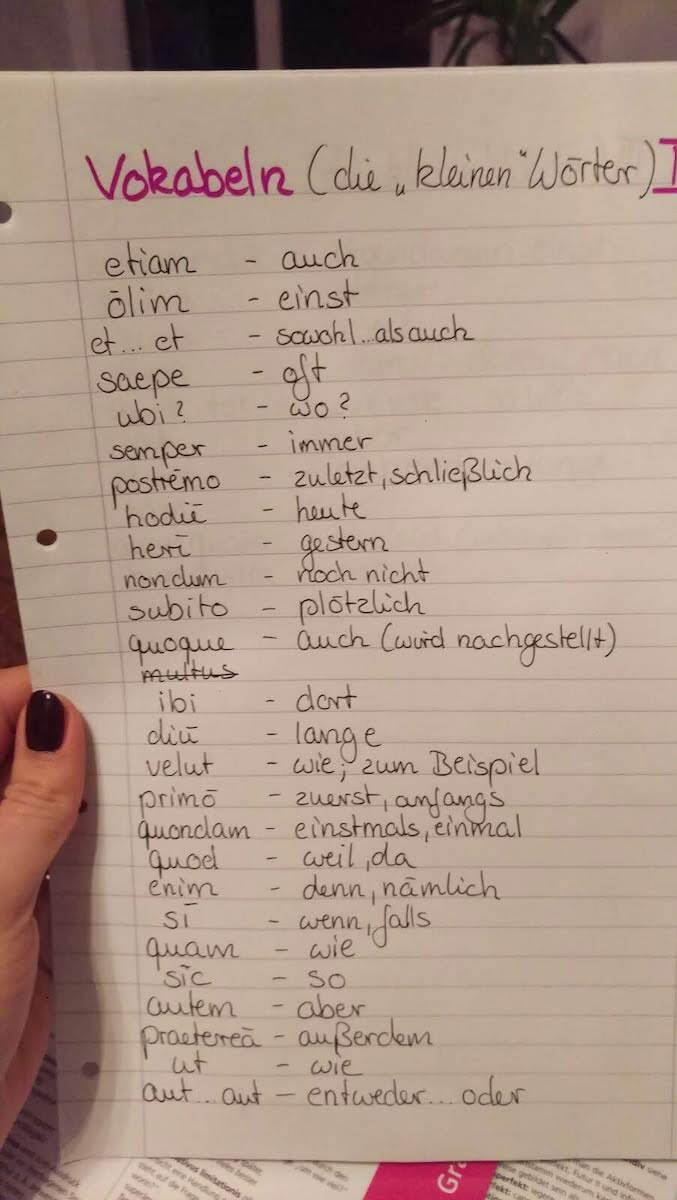 Vokabeln (die „kleinen" Wörter) I
etiam - auch
ōlim - einst
et... et - sowohl...als auch
saepe - oft
ubi? - wo?
semper - immer
postrēmo - zuletzt, schließlich
hodiē - heute
herī - gestern
nondum - noch nicht
subito - plötzlich
quoque - auch (wird nachgestellt)
multus
ibi - dort
diū - lange
velut - wie; zum Beispiel
primō - zuerst, anfangs
quondam - einstmals, einmal
quod - weil, da
enim - denn, nämlich
sī - wenn, falls
quam - wie
sīc - so
autem - aber
praetereā - außerdem
ut - wie
aut...aut - entweder...oder